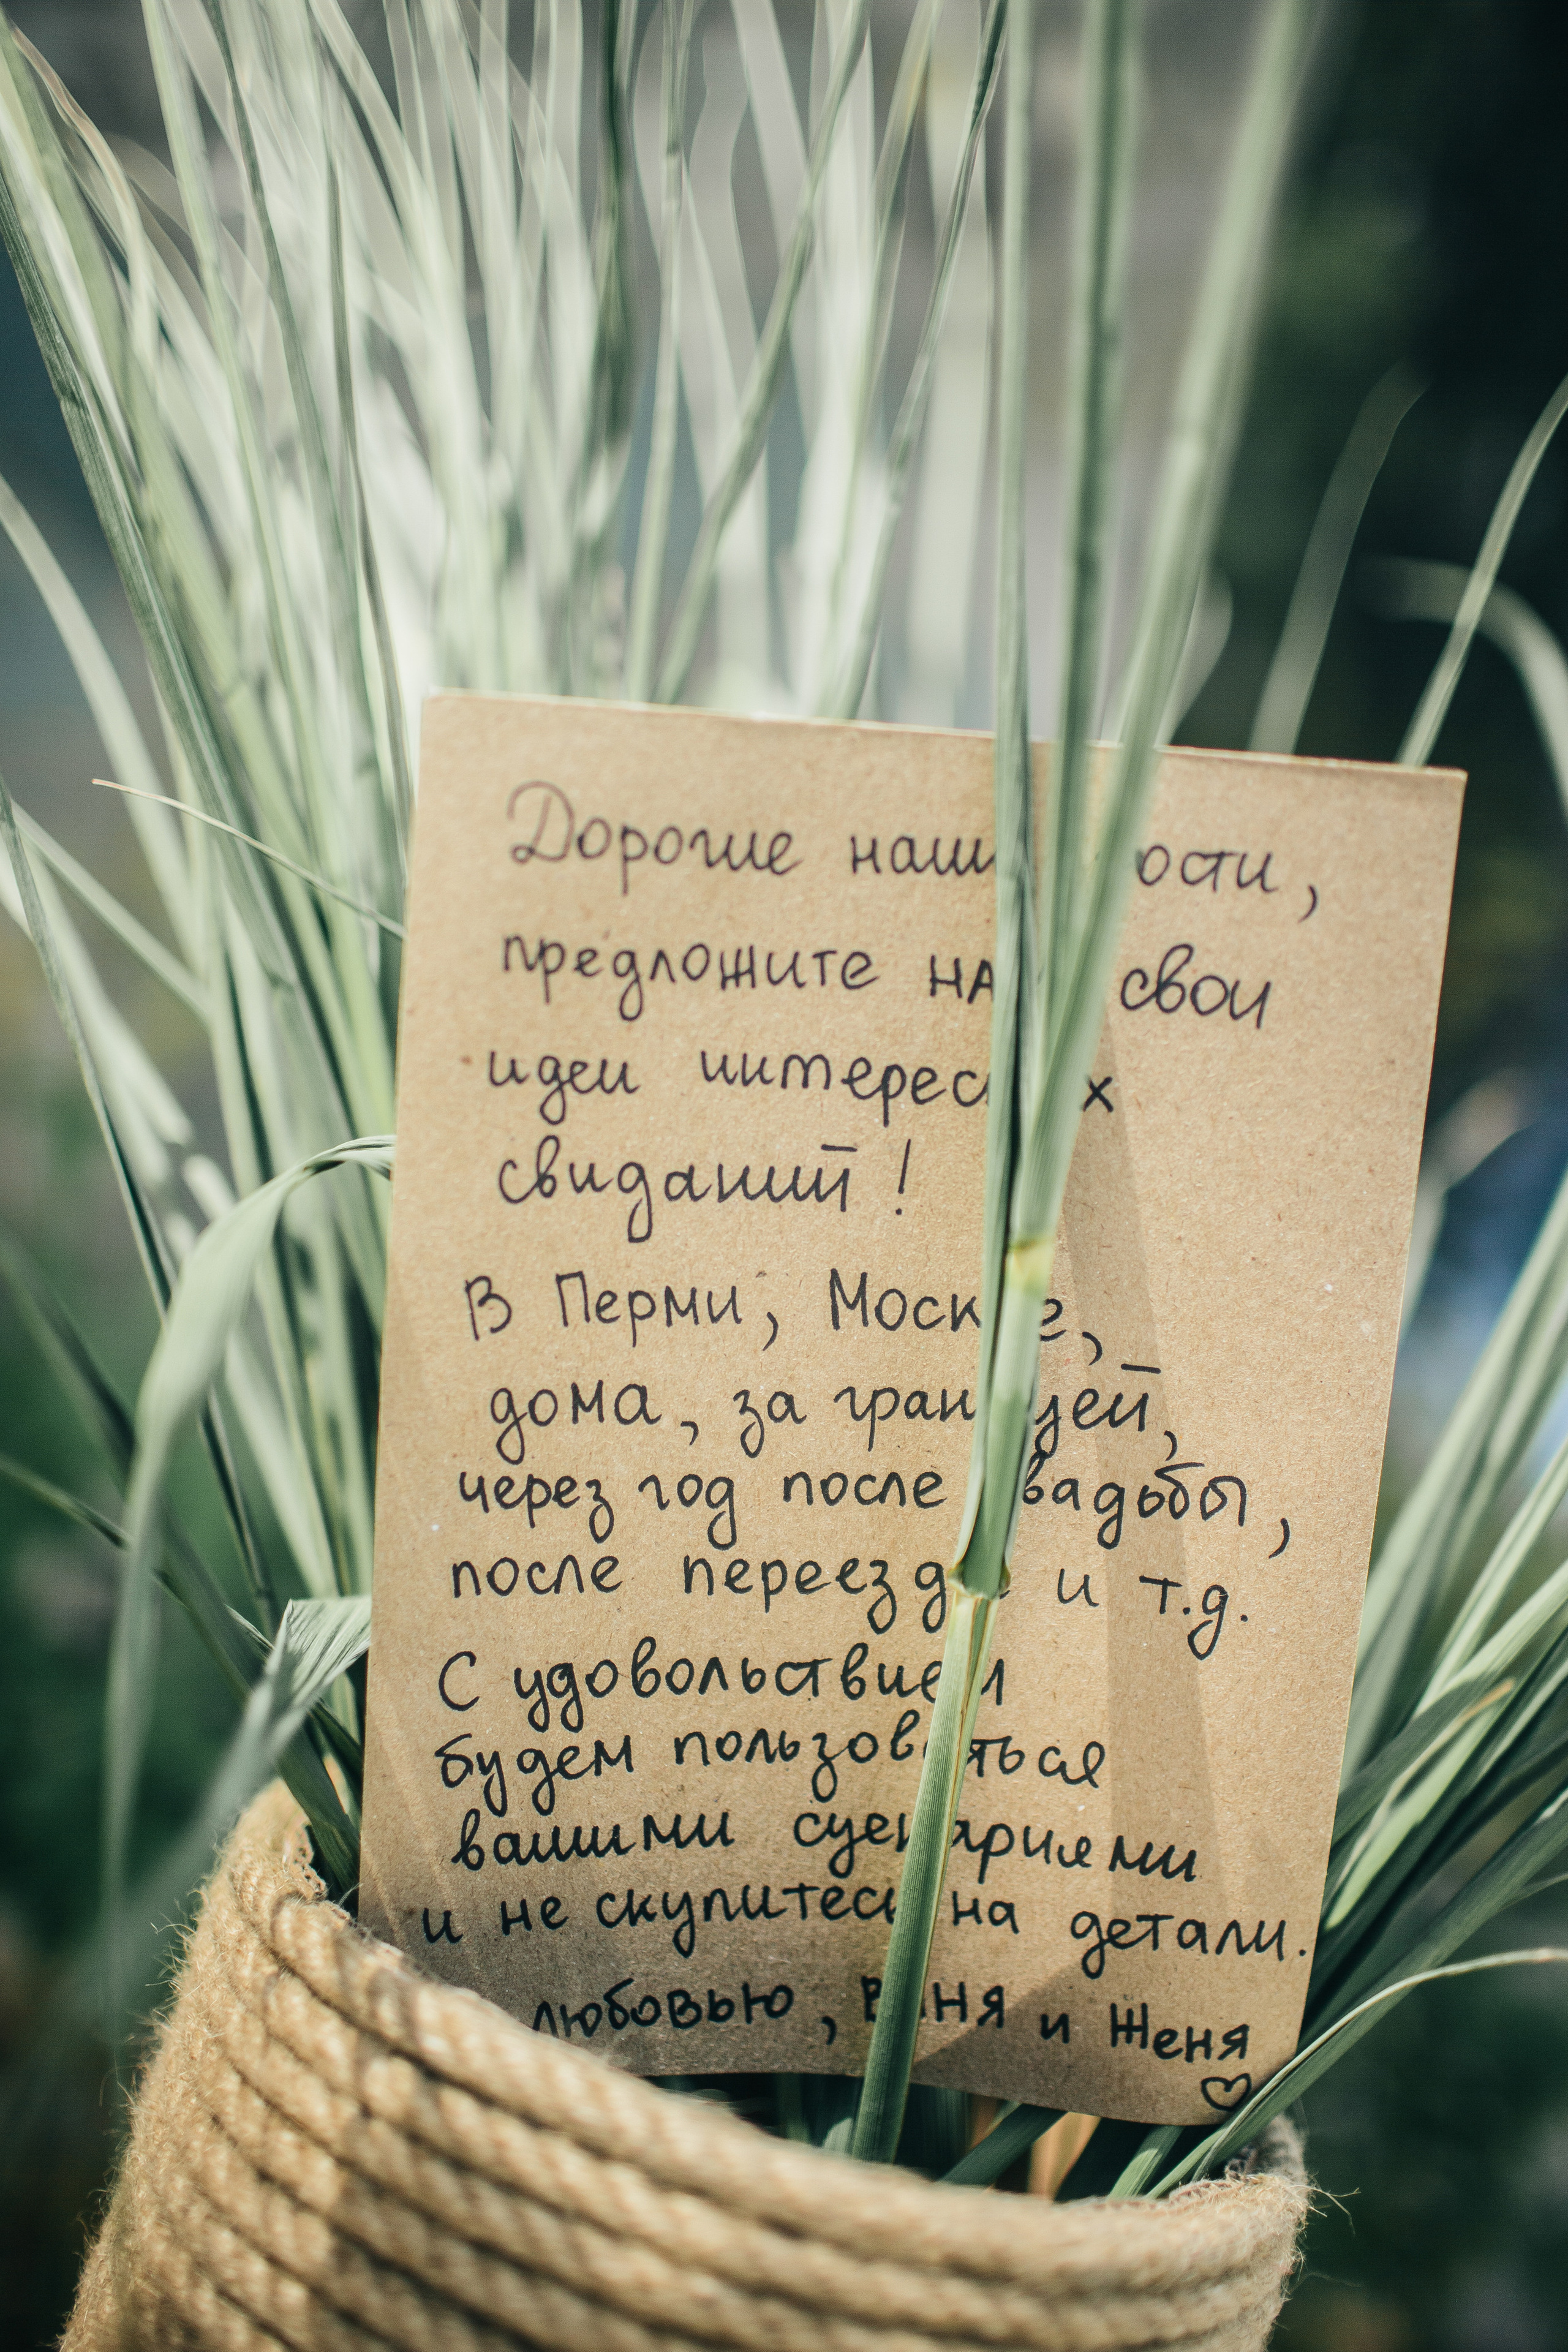 Дорогие наши гости,
предложите нам свои
идеи интересных
свиданий!
В Перми, Москве,
дома, за границей,
через год после свадьбы,
после переезда и т.д.
С удовольствием
будем пользоваться
вашими сценариями
и не скупитесь на детали.
любовью, Ваня и Женя
♡